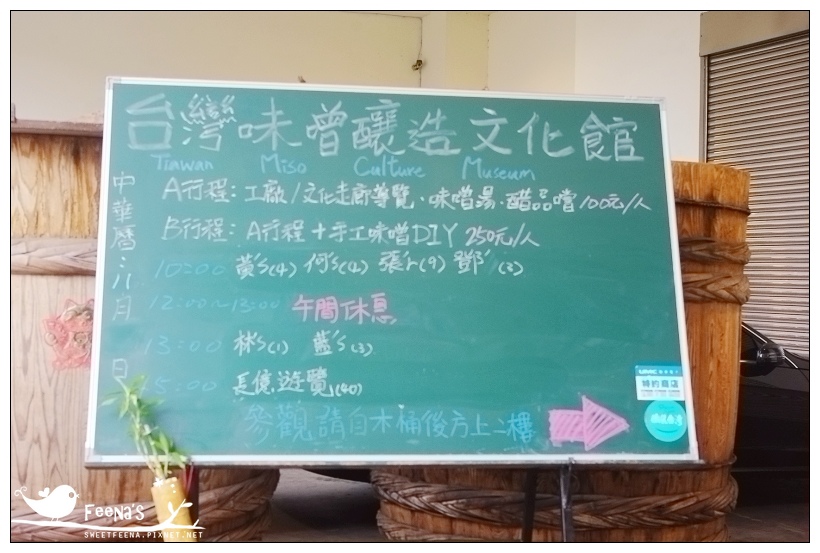 台灣味噌釀造文化館
Tiawan Miso Culture Museum
A行程：工廠/文化走廊導覽、味噌湯、醋品嚐100元/人
B行程：A行程＋手工味噌DIY 250元/人
中華曆：八月 日
10:00 黃's(4) 何's(2) 張'r(9) 鄧' (3)
12:00~13:00 午間休息
13:00 林's(1) 藍's(3)
15:00 長億遊覽(40)
參觀請自木桶後方上二樓
特約商店
FEENA'S
SWEETFEENA.PIXNET.NET